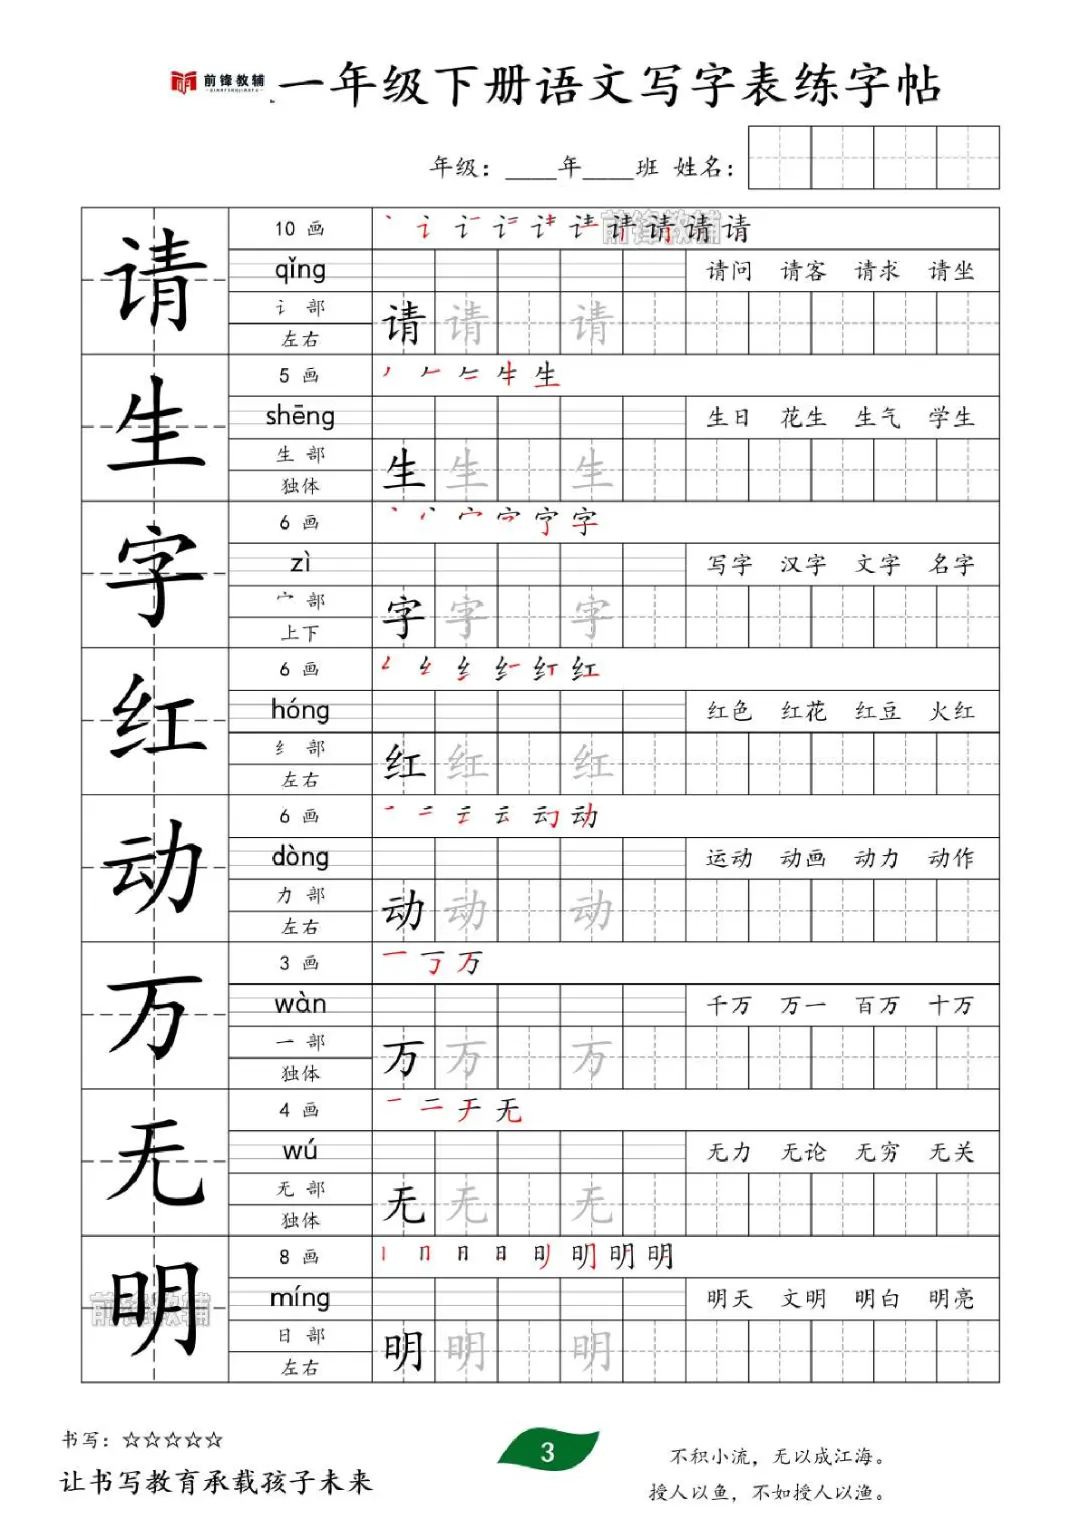 前锋教辅 一年级下册语文写字表练字帖
年级：____年____班 姓名：
请 10 画 丶 讠 请 请 请 请
qǐng 请问 请客 请求 请坐
讠 部 请 请 请
左右
生 5 画 生
shēng 生日 花生 生气 学生
生 部 生 生 生
独体
字 6 画 字
zì 写字 汉字 文字 名字
宀 部 字 字 字
上下
红 6 画 红
hóng 红色 红花 红豆 火红
纟 部 红 红 红
左右
动 6 画 一 二 云 动
dòng 运动 动画 动力 动作
力 部 动 动 动
左右
万 3 画 一 万
wàn 千万 万一 百万 十万
一 部 万 万 万
独体
无 4 画 一 二 无
wú 无力 无论 无穷 无关
无 部 无 无 无
独体
明 8 画 丨 冂 日 日 明 明 明
míng 明天 文明 明白 明亮
日 部 明 明 明
左右
前锋教辅
前锋教辅
书写：☆☆☆☆☆
让书写教育承载孩子未来
3
不积小流，无以成江海。
授人以鱼，不如授人以渔。